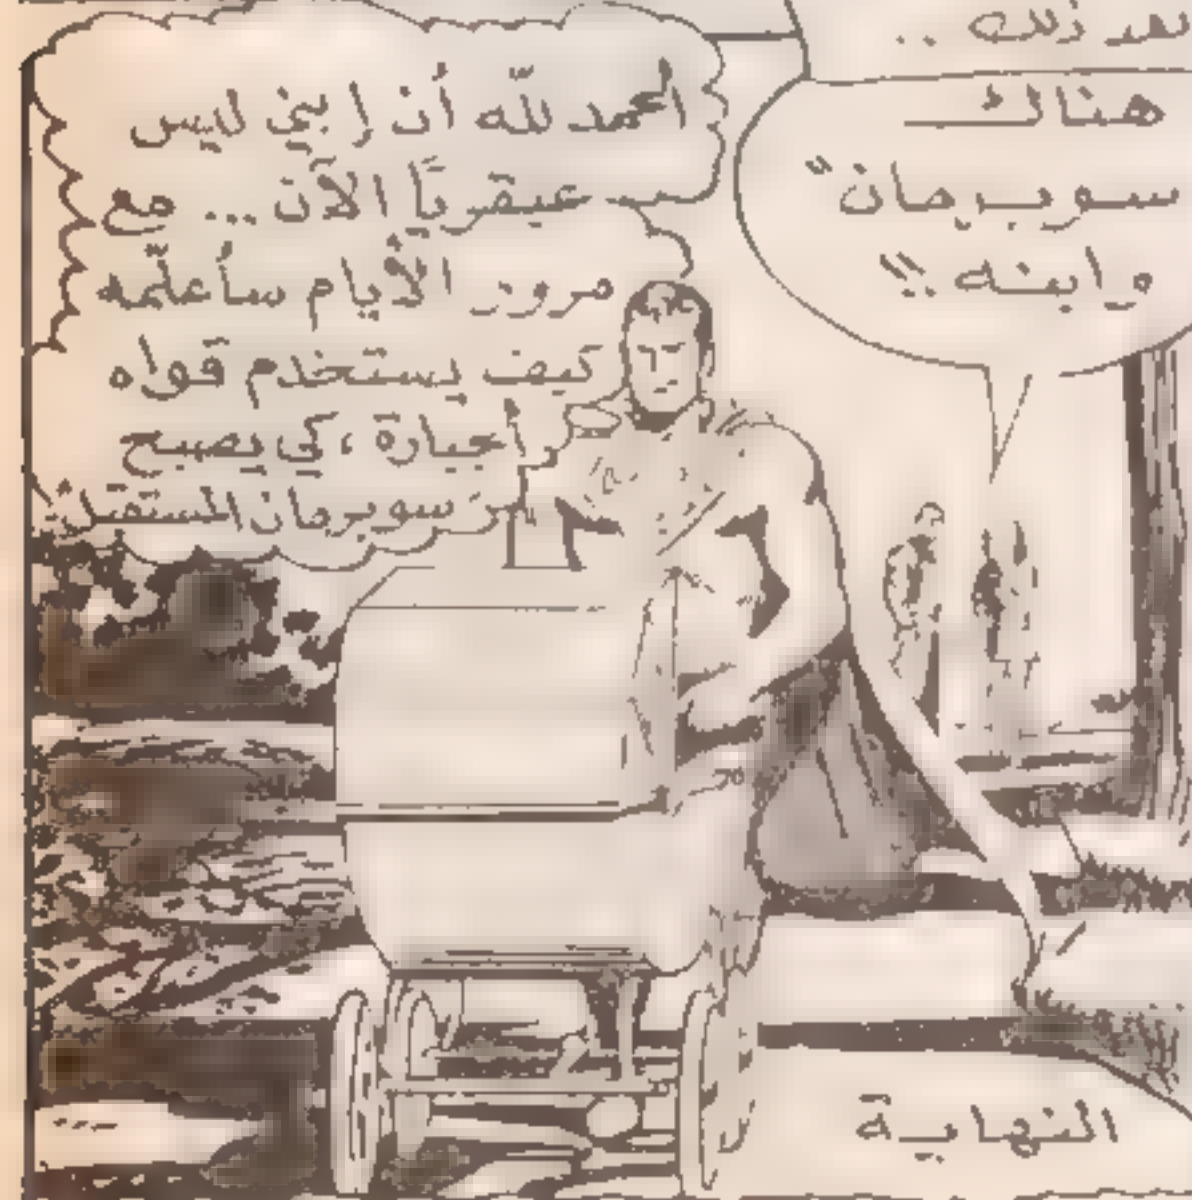 بعد ذلك ..
هناك
سوبرمان"
وابنه !!
الحمد لله أن إبني ليس
عبقريًا الآن ... مع
مرور الأيام سأعلّمه
كيف يستخدم قواه
الجبارة ، كي يصبح
سوبرمان المستقبل
النهاية